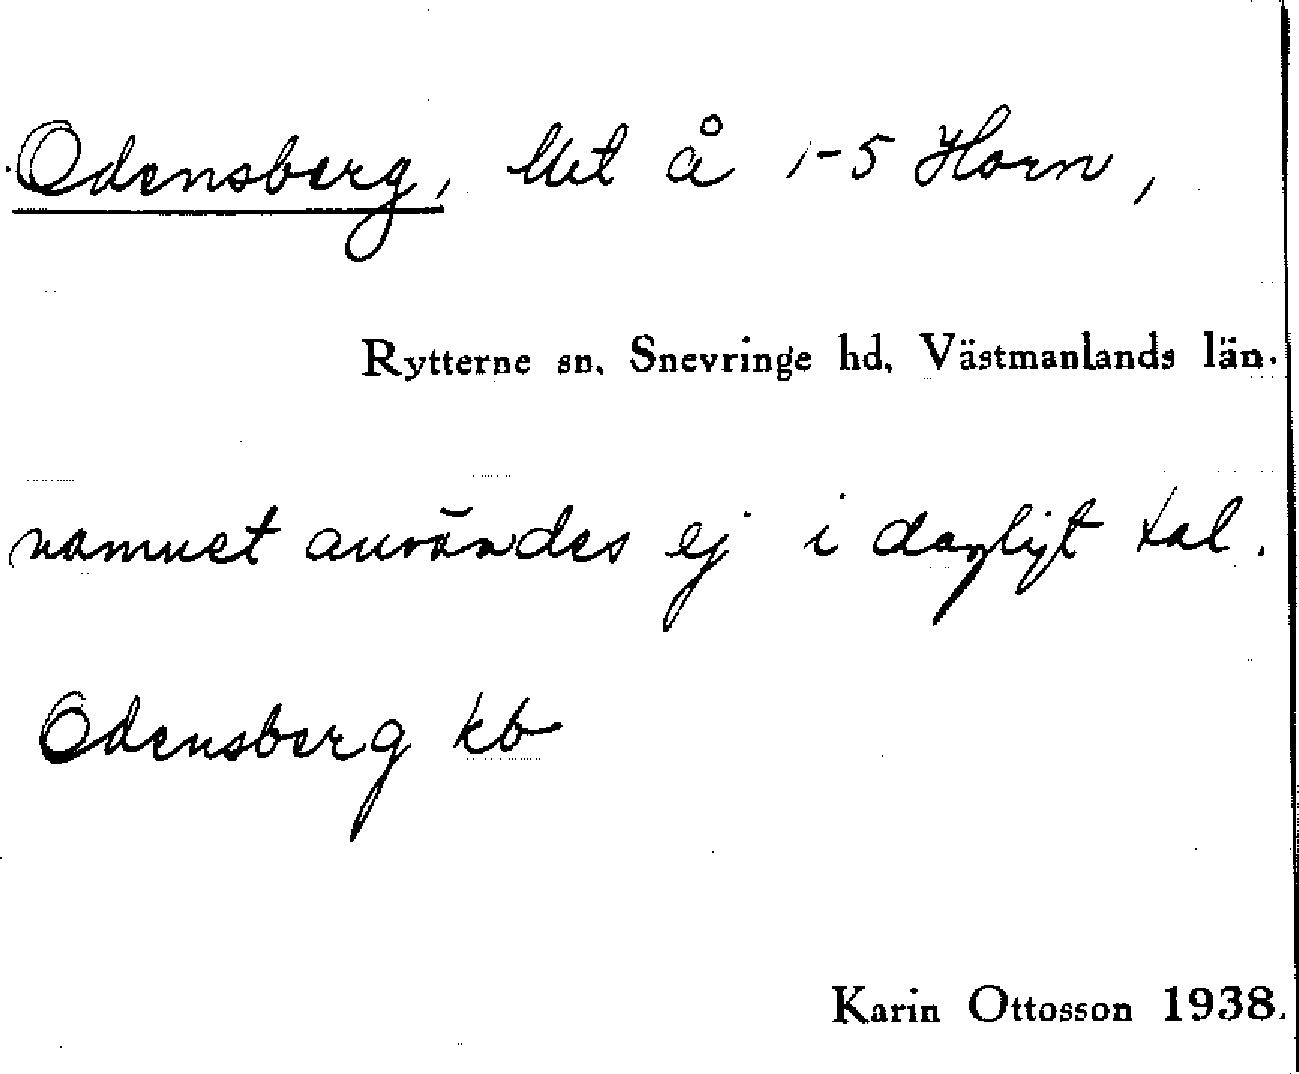 Odensberg, lht å 1-5 Horn,
Rytterne sn, Snevringe hd, Västmanlands län.
namnet användes ej i dagligt tal.
Odensberg kb
Karin Ottosson 1938.